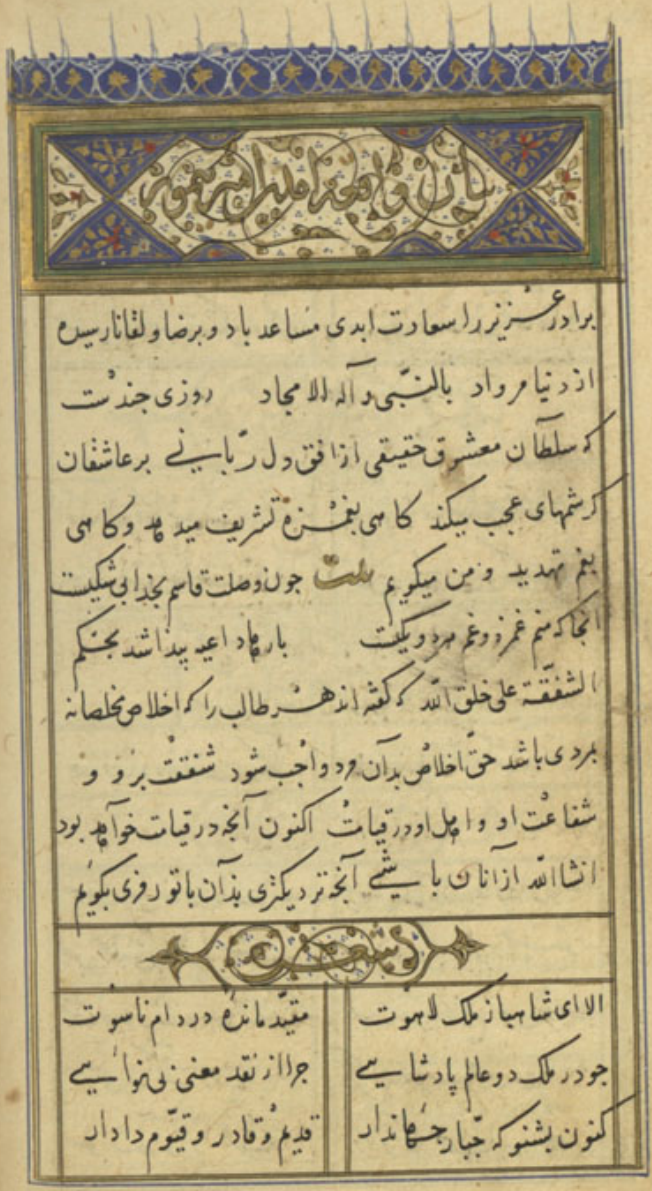 بیان واقعهٔ امیر تیمور
برادر عزیز را سعادت ابدی مساعد باد و برضا و لقا نارسیده
از دنیا مرواد بالنّبی و آله الامجاد روزی جندست
که سلطان معشوق حقیقی از افق دل ربایی بر عاشقان
کرشمهای عجب میکند کاهی بغمزه تشریف میدهد و کاهی
بغم تهدید و من میکویم بیت جون وصلت قاسم بخدایی شکیت
انجا که منم غمزه و غم هر دو یکیت بار هاداعیه پیدا شد بحکم
الشفقة علی خلق الله که کفته اند هر طالب را که اخلاص مخلصانه
بمردی باشد حقّ اخلاص بدان مرد واجب شود شفقت برو و
شفاعت او و اهل او در قیامت اکنون آنجه در قیامت خواهد بود
انشاالله از آنان باشی آنجه نزدیکتری بذان با تو رمزی بکویم
شعر
الا ای شاهباز ملک لاهوت مقیّد مانده در دام ناسوت
جو در ملک دو عالم پادشایی جرا از نقد معنی بی نوایی
کنون بشنو که جبّار جهاندار قدیم و قادر و قیّوم دادار